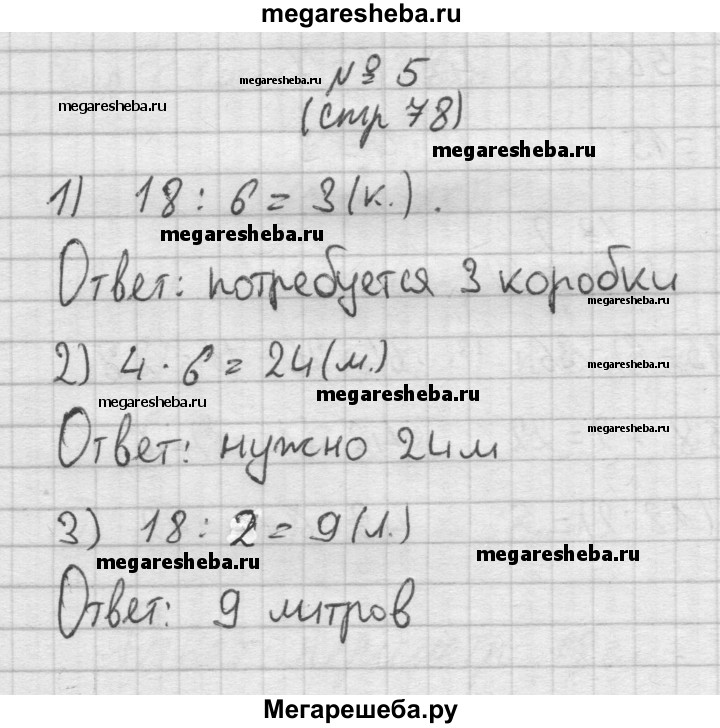 megaresheba.ru
megaresheba.ru № 5
megaresheba.ru (стр 78)
megaresheba.ru
1) 18 : 6 = 3 (к.) .
megaresheba.ru
Ответ: потребуется 3 коробки
megaresheba.ru
2) 4 · 6 = 24 (м.)
megaresheba.ru
megaresheba.ru
megaresheba.ru
Ответ: нужно 24 м
megaresheba.ru
3) 18 : 2 = 9 (л.)
megaresheba.ru
megaresheba.ru
Ответ: 9 литров
Мегарешеба.ру